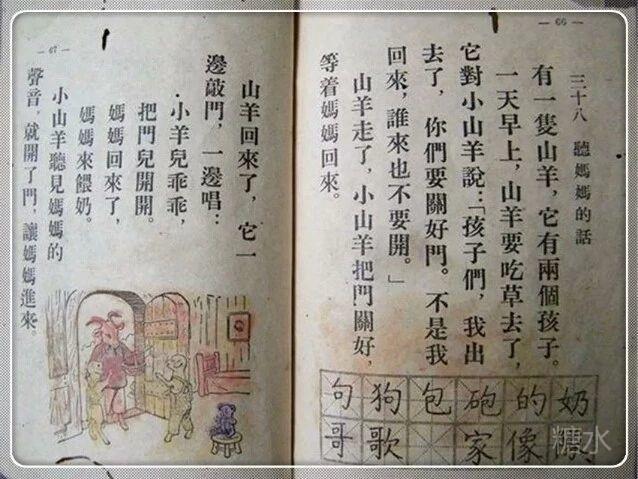 — 66 —
三十八　聽媽媽的話
有一隻山羊，它有兩個孩子。
一天早上，山羊要吃草去了，
它對小山羊說：「孩子們，我出
去了，你們要關好門。不是我
回來，誰來也不要開。」
山羊走了，小山羊把門關好，
等着媽媽回來。
句 狗 包 砲 的 奶
哥 歌 家 像
— 67 —
山羊回來了，它一
邊敲門，一邊唱：
小羊兒乖乖，
把門兒開開。
媽媽回來了，
媽媽來餵奶。
小山羊聽見媽媽的
聲音，就開了門，讓媽媽進來。
糖水